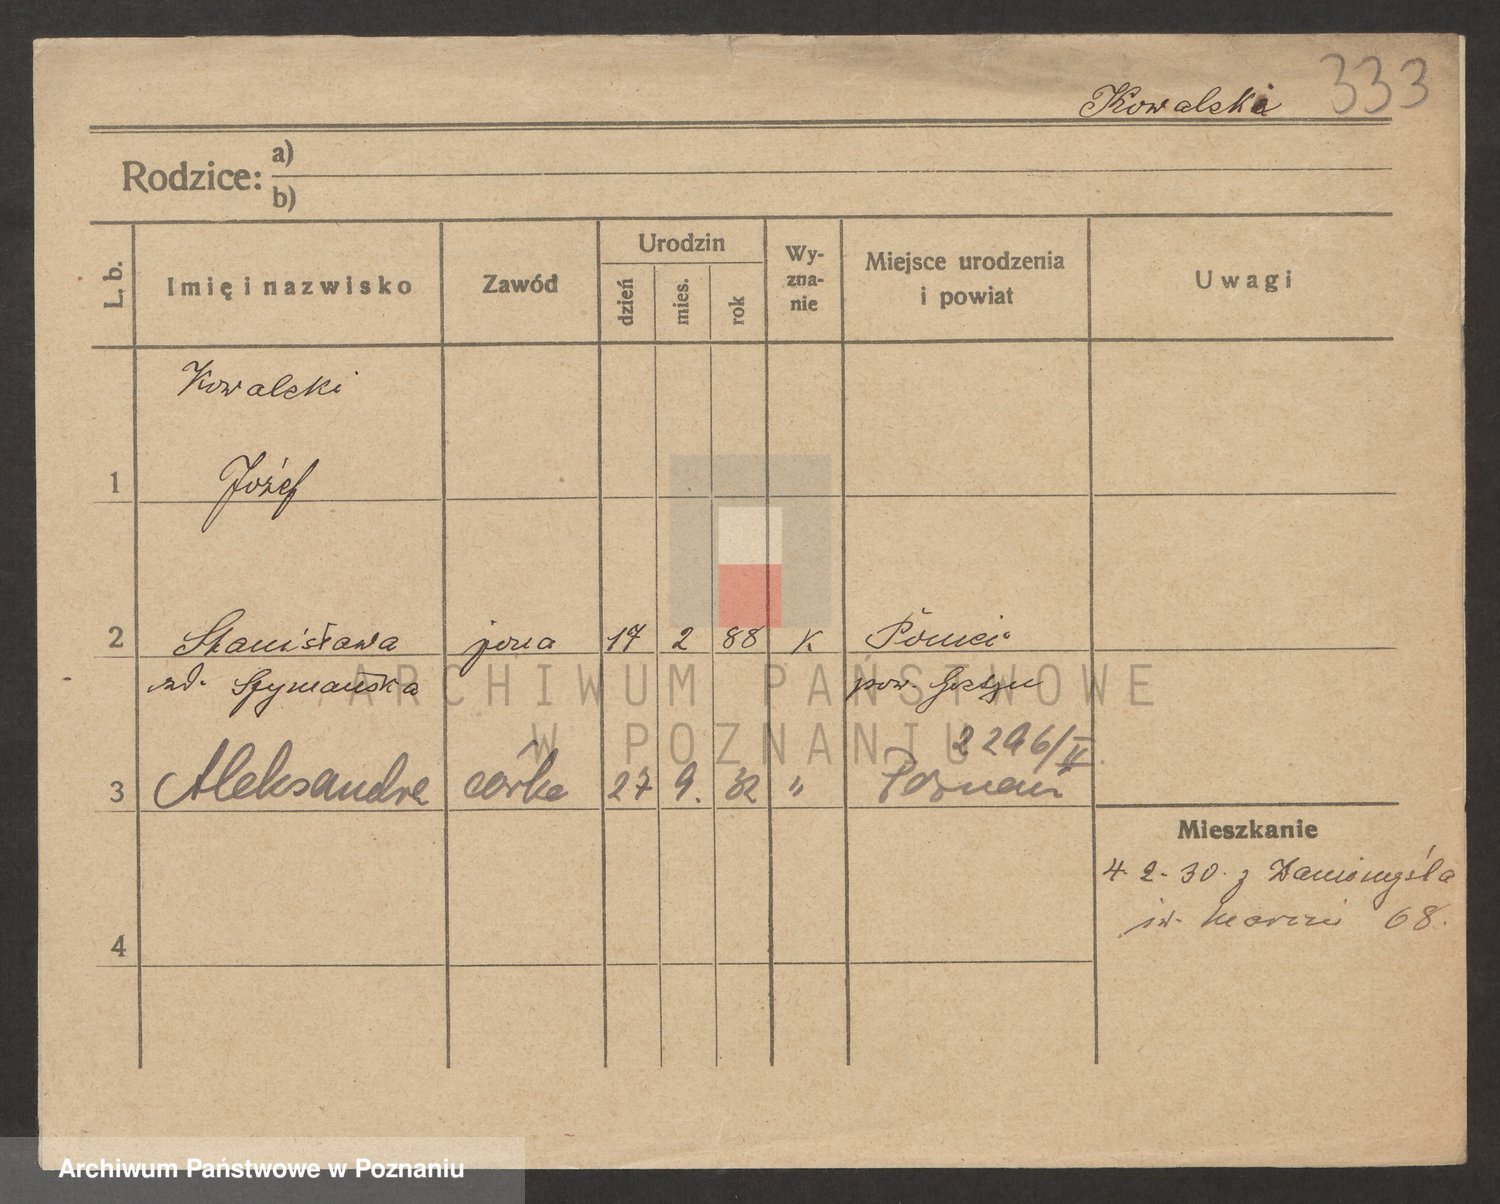 Kowalski 333
Rodzice: a)
b)
L. b. Imię i nazwisko Zawód Urodzin dzień mies. rok Wy-zna-nie Miejsce urodzenia i powiat Uwagi
Kowalski
1 Józef
2 Stanisława żona 17 2 88 K
zd. Szymańska pow. Gostyń
2296/II
3 Aleksandra córka 27 9. 32 " Poznań
Mieszkanie
4. 2. 30. z Zaniemyśla
św. Marcin 68.
4
ARCHIWUM PAŃSTWOWE
W POZNANIU
Archiwum Państwowe w Poznaniu